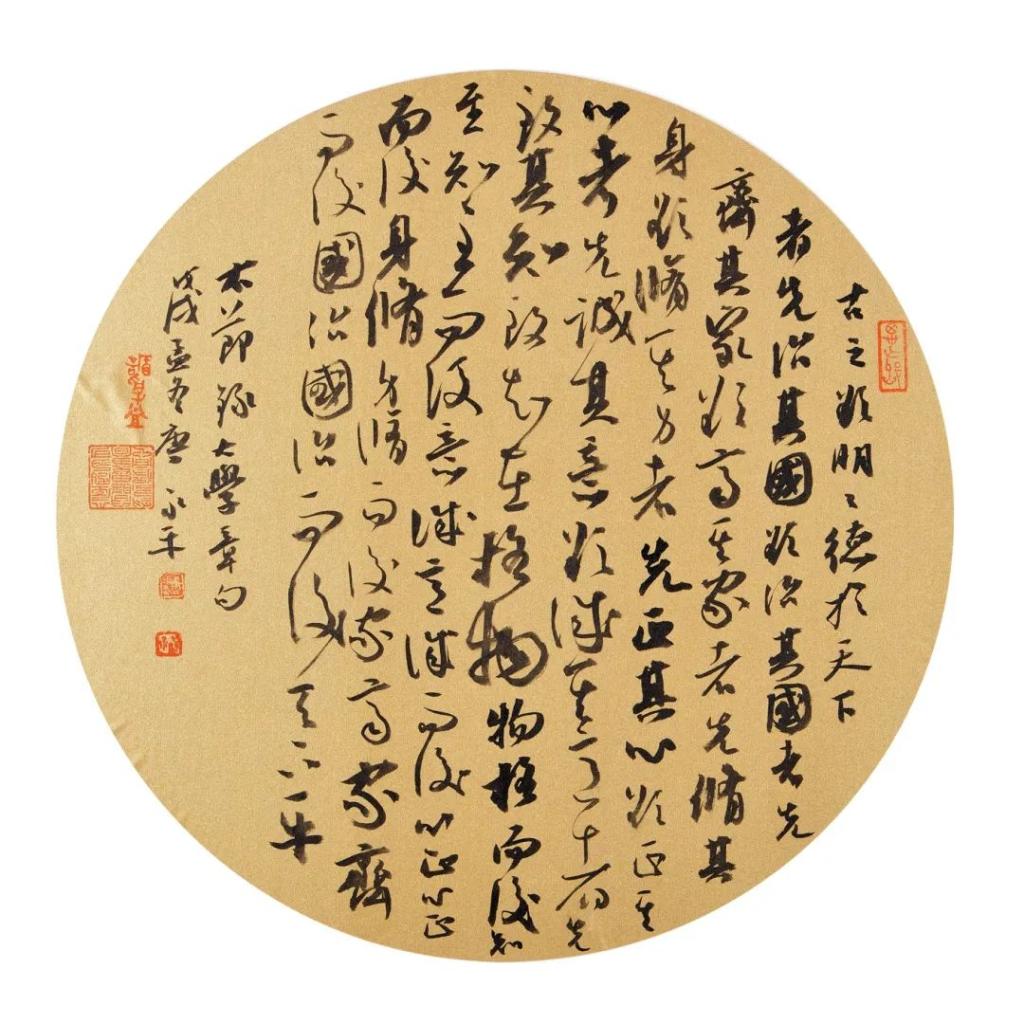 古之欲明〻德於天下
者先治其國欲治其國者先
齊其家欲齊其家者先脩其
身欲脩其身者先正其心欲正其
心者先誠其意欲誠其意者先
致其知致知在格物物格而後知
至知至而後意誠意誠而後心正心正
而後身脩身脩而後家齊家齊
而後國治國治而後天下平
右節録大學章句
戊戌孟冬唐永平